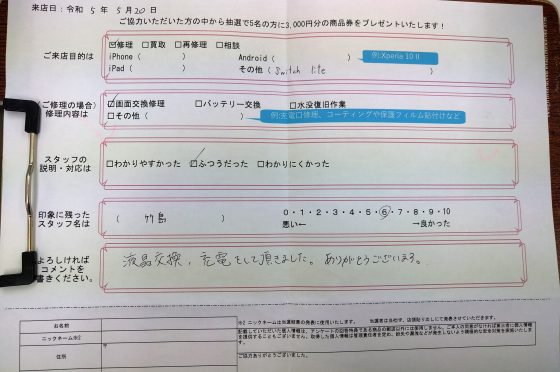 来店日：令和 5 年 5 月 20 日
ご協力いただいた方の中から抽選で5名の方に3,000円分の商品券をプレゼントいたします！
ご来店目的は
☑修理 □買取 □再修理 □相談
iPhone（ ） Android（ ） 例:Xperia 10 Ⅱ
iPad（ ） その他（Switch lite ）
（ご修理の場合）
修理内容は
☑画面交換修理 □バッテリー交換 □水没復旧作業
□その他（ 例:充電口修理、コーティングや保護フィルム貼付けなど
スタッフの
説明・対応は
□わかりやすかった ☑ふつうだった □わかりにくかった
印象に残った
スタッフ名は
（ 竹島 ）
0・1・2・3・4・5・6・7・8・9・10
悪い← →良かった
よろしければ
コメントを
お書きください。
液晶交換、充電をして頂きました。ありがとうございます。
お名前
ニックネーム※2
住所
〒
※2 ニックネームは当選結果の発表に使用いたします。
ご協力ありがとうございました。